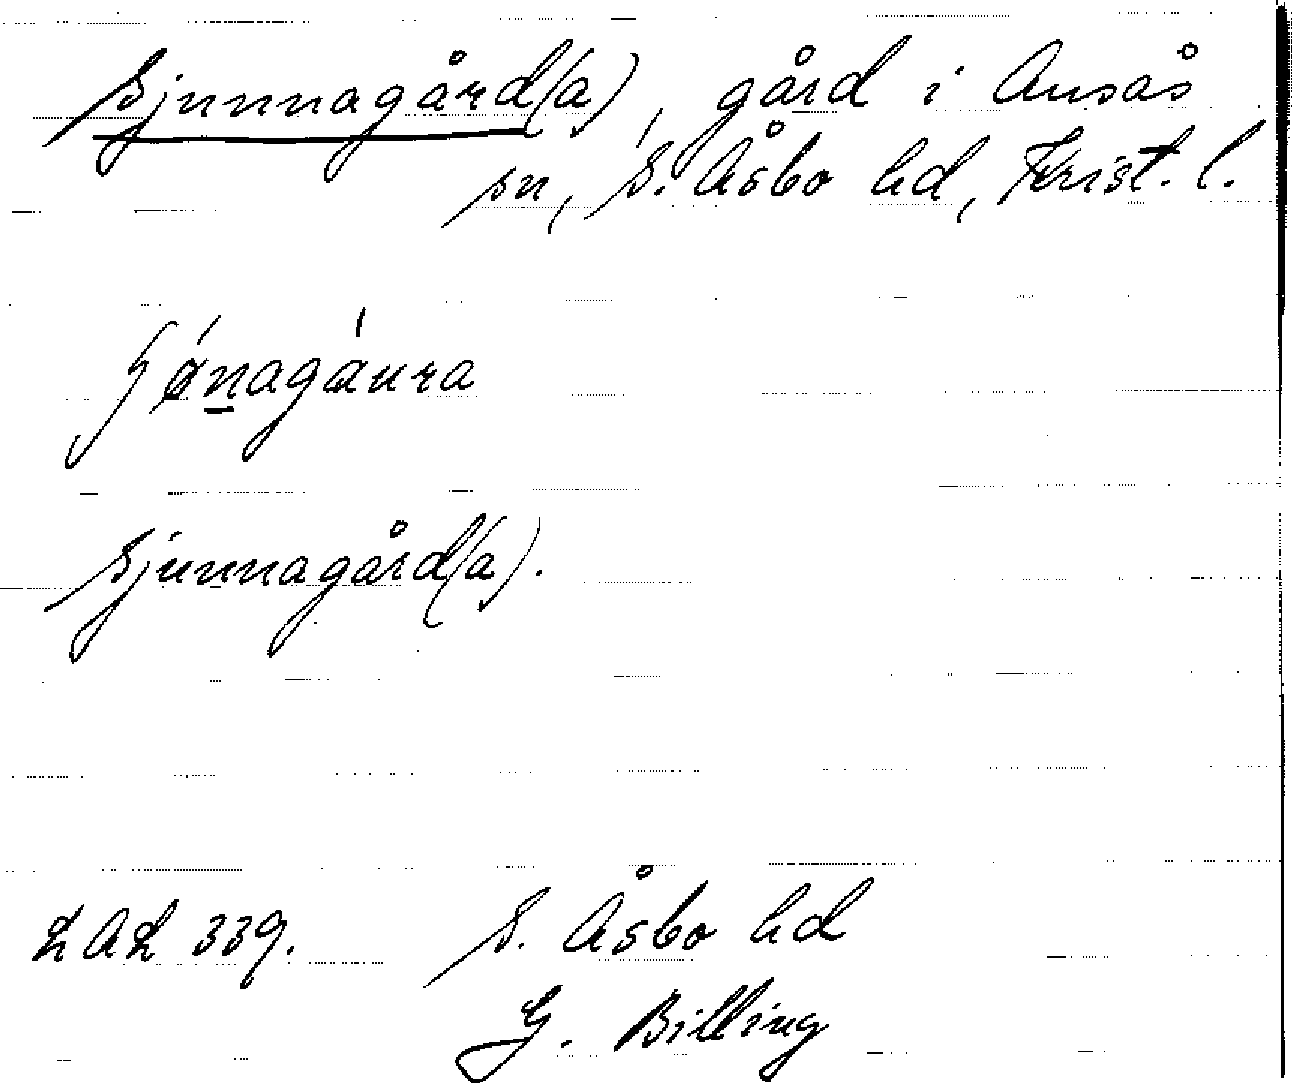 Sjunnagård(a), gård i Ausås
sn, S. Åsbo hd, Krist. l.
ʃǿnagáura
Sjunnagård(a).
LAL 339. S. Åsbo hd
G. Billing